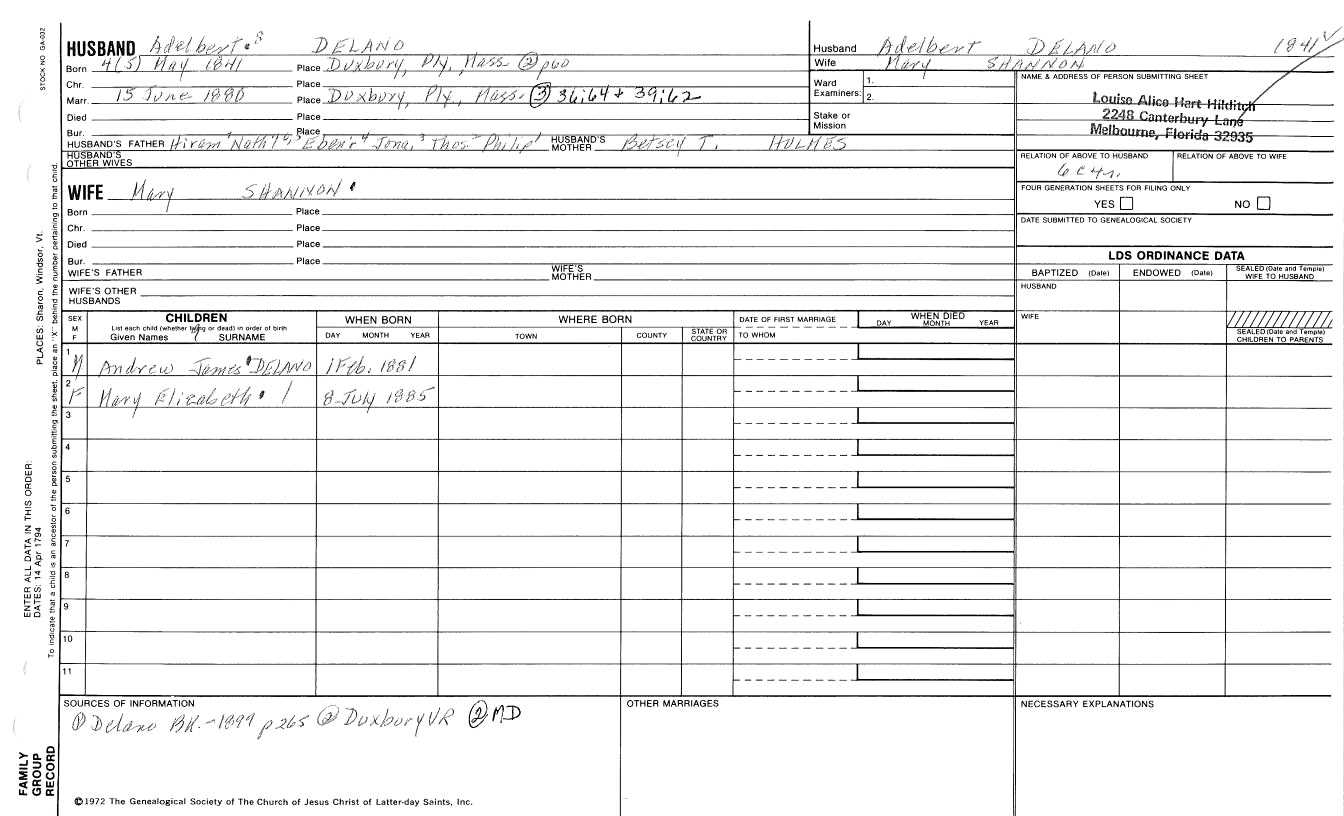 STOCK NO. GA-032
HUSBAND Adelbert 8 DELANO
Born 4(5) May 1841 Place Duxbury, Ply, Mass. ② p60
Chr. Place
Marr. 15 June 1880 Place Duxbury, Ply., Mass. ③ 36:64 + 39:62
Died Place
Bur. Place
HUSBAND'S FATHER Hiram Nath'l Eben'r 4 Jona. 3 Thos. 2 Philip 1 HUSBAND'S MOTHER Betsey T. HOLMES
HUSBAND'S OTHER WIVES
WIFE Mary SHANNON
Born Place
Chr. Place
Died Place
Bur. Place
WIFE'S FATHER WIFE'S MOTHER
WIFE'S OTHER HUSBANDS
Husband Adelbert DELANO 1841
Wife Mary SHANNON
Ward Examiners: 1. 2.
Stake or Mission
NAME & ADDRESS OF PERSON SUBMITTING SHEET
Louise Alice Hart Hilditch
2248 Canterbury Lane
Melbourne, Florida 32935
RELATION OF ABOVE TO HUSBAND RELATION OF ABOVE TO WIFE
6 c 4 r.
FOUR GENERATION SHEETS FOR FILING ONLY
YES NO
DATE SUBMITTED TO GENEALOGICAL SOCIETY
LDS ORDINANCE DATA
BAPTIZED (Date) ENDOWED (Date) SEALED (Date and Temple) WIFE TO HUSBAND
HUSBAND
WIFE
SEALED (Date and Temple) CHILDREN TO PARENTS
SEX M F
CHILDREN
List each child (whether living or dead) in order of birth
Given Names SURNAME
WHEN BORN
DAY MONTH YEAR
WHERE BORN
TOWN COUNTY STATE OR COUNTRY
DATE OF FIRST MARRIAGE
TO WHOM
WHEN DIED
DAY MONTH YEAR
1 M Andrew James DELANO 1 Feb. 1881
2 F Mary Elizabeth 8 July 1885
3
4
5
6
7
8
9
10
11
SOURCES OF INFORMATION
① Delano BK.-1899 p265 ② Duxbury VR ② MD
OTHER MARRIAGES
NECESSARY EXPLANATIONS
©1972 The Genealogical Society of The Church of Jesus Christ of Latter-day Saints, Inc.
PLACES: Sharon, Windsor, Vt.
To indicate that a child is an ancestor of the person submitting the sheet, place an "X" behind the number pertaining to that child.
ENTER ALL DATA IN THIS ORDER:
DATES: 14 Apr 1794
FAMILY
GROUP
RECORD